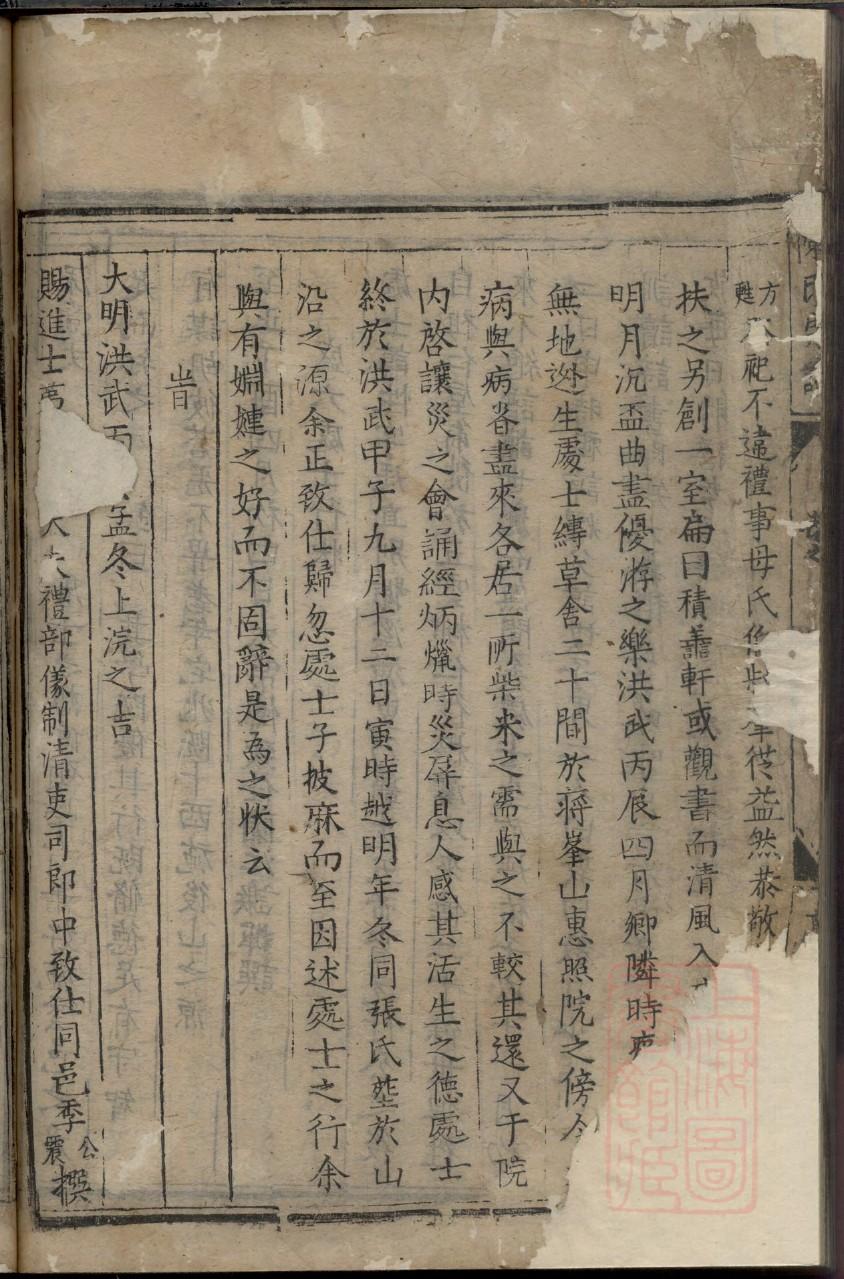 方甦祀不違禮事母氏恭敬
扶之另創一室扁曰積善軒或觀書而清風入
明月沉盃曲盡優游之樂洪武丙辰四月鄉隣時疫
無地逊生處士縳草舍三十間於蔣峯山惠照院之傍令
病與病者盡來各居一所柴米之需與之不較其還又于院
内啓讓災之會誦經炳爉時災屏息人感其活生之德處士
終於洪武甲子九月十二日寅時越明年冬同張氏塟於山
沿之源余正致仕歸忽處士子披麻而至因述處士之行余
與有婣娷之好而不固辭是為之状云
旹
大明洪武丙孟冬上浣之吉
賜進士大夫禮部儀制清吏司郎中致仕同邑季公震撰